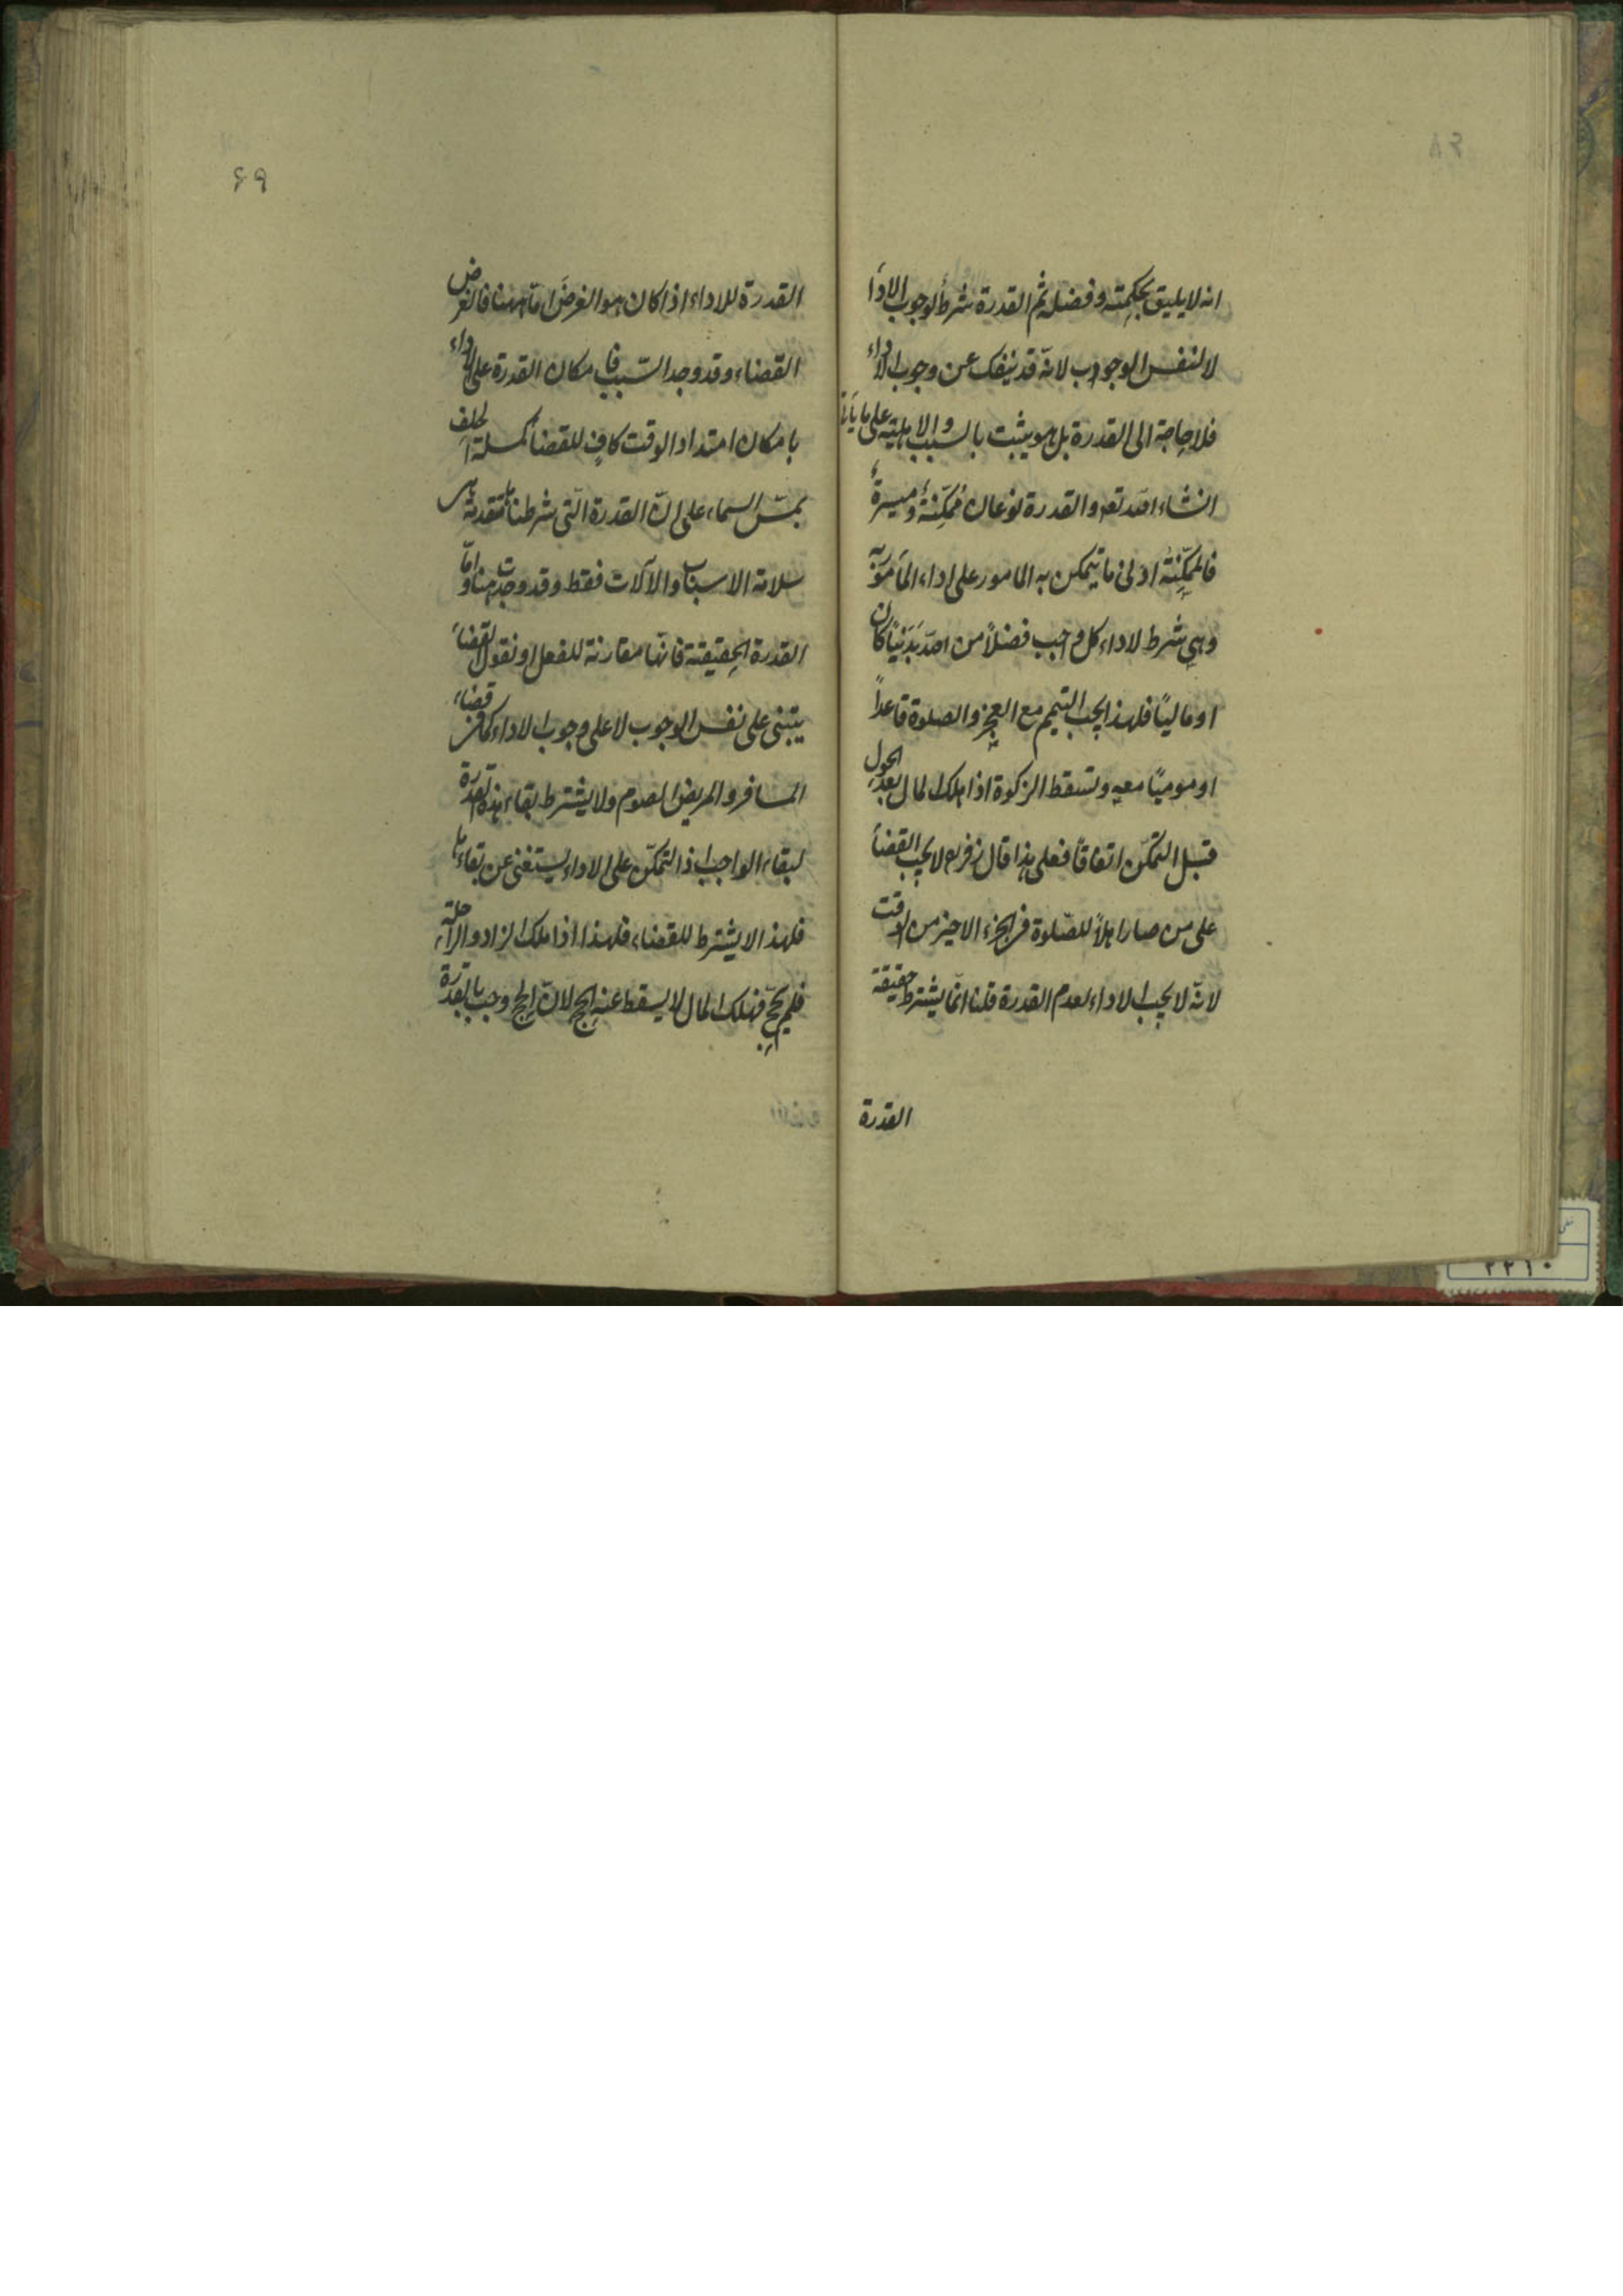 انه لا يليق بحكمته وفضله ثم القدرة شرط لوجوب الاداء
لا لنفس الوجوب لانّه قد ينفك عن وجوب الاداء
فلا حاجة الى القدرة بل هو يثبت بالسبب والاهلية على ما يأتى
انشاء الله تعه والقدرة نوعان مُمَكِّنَةٌ وميسرةٌ
فالممكِّنةُ ادنى ما يتمكن به المامور على اداء المأمور به
وهى شرط لاداء كل واجب فضلاً من الله بَدَنيّاً كان
او ماليّاً فلهذا يجب التيمم مع العجز والصلوة قاعداً
او موميّاً معه وتسقط الزكوة اذا هلك المال بعد الحول
قبل التمكّن اتفاقاً فعلى هذا قال زفر رح لا يجب القضاء
على من صار اهلاً للصّلوة فى الجزء الاخير من الوقت
لانّه لا يجب الاداء لعدم القدرة قلنا انّما يشترط حقيقة
القدرة
۶۹
القدرة للاداء اذا كان هو الغرضَ امّا ههنا فالغرض
القضاء وقد وجد السّبب فامكان القدرة على الاداء
بامكان امتداد الوقت كافٍ للقضاء كمسئلة الحلف
بمسّ السماء على انّ القدرة الّتى شرطناها متقدمة هى
سلامة الاسباب والآلات فقط وقد وجدت هنا وامّا
القدرة الحقيقية فانّها مقارنة للفعل او نقول القضاء
يبتنى على نفس الوجوب لا على وجوب الاداء كما فى قضاء
المسافر والمريض الصوم ولا يشترط بقاء هذه القدرة
لبقاء الواجب اذ التمكّن على الاداء يستغنى عن بقائها
فلهذا لا يشترط للقضاء فلهذا اذا ملك الزاد والراحلة
فلم يحجّ فهلك المال لا يسقط عنه الحج لانّ الحج وجب بالقدرة
۲۲۱۰